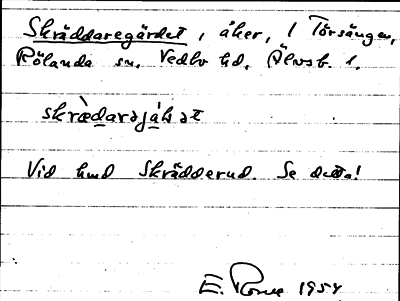 Skräddaregärdet, åker, 1 Törsängen,
Rölanda sn. Vedbo hd. Älvsb. l.
skrædarajáḷat
Vid hmd Skrädderud. Se detta!
E. 1954